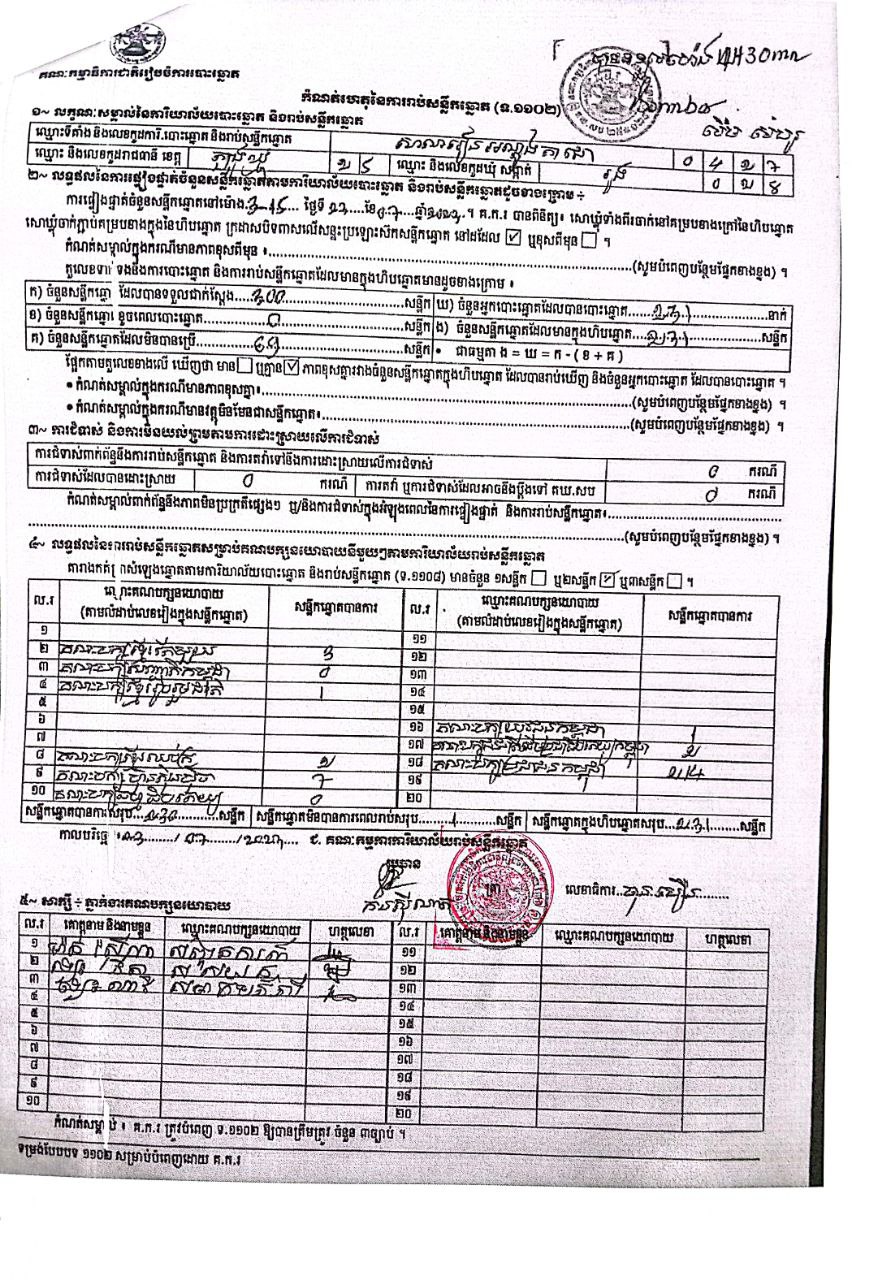 គណៈកម្មាធិការជាតិរៀបចំការបោះឆ្នោត
កំណត់ហេតុនៃការរាប់សន្លឹកឆ្នោត (ទ.១១០២)
១~ លក្ខណៈសម្គាល់នៃការិយាល័យបោះឆ្នោត និងរាប់សន្លឹកឆ្នោត
ឈ្មោះទីតាំង និងលេខកូដការិ.បោះឆ្នោត និងរាប់សន្លឹកឆ្នោត 0 4 ២ ៧
ឈ្មោះ និងលេខកូដរាជធានី ខេត្ត ត្បូងឃ្មុំ ២ ៥ ឈ្មោះ និងលេខកូដឃុំ សង្កាត់ រូង 0 ២ ៨
២~ លទ្ធផលនៃការផ្ទៀងផ្ទាត់ចំនួនសន្លឹកឆ្នោតតាមការិយាល័យបោះឆ្នោត និងរាប់សន្លឹកឆ្នោតដូចខាងក្រោម ÷
ការផ្ទៀងផ្ទាត់ចំនួនសន្លឹកឆ្នោតនៅម៉ោង 3-15 ថ្ងៃទី ២៣ ខែ ០៧ ឆ្នាំ ២០២៣ ។ គ.ក.រ បានពិនិត្យ៖ សោឃ្មុំទាំងពីរចាក់នៅគម្របខាងក្រៅនៃហិបឆ្នោត
សោឃ្មុំចាក់ភ្ជាប់គម្របខាងក្នុងនៃហិបឆ្នោត ក្រដាសបិទពាសលើសន្ទះប្រឡោះស៊កសន្លឹកឆ្នោត នៅដដែល ☑ ឬខុសពីមុន ☐ ។
កំណត់សម្គាល់ក្នុងករណីមានភាពខុសពីមុន ៖ (សូមបំពេញបន្ថែមផ្នែកខាងខ្នង) ។
តួលេខទាក់ទងនឹងការបោះឆ្នោត និងការរាប់សន្លឹកឆ្នោតដែលមានក្នុងហិបឆ្នោតមានដូចខាងក្រោម ៖
ក) ចំនួនសន្លឹកឆ្នោត ដែលបានទទួលជាក់ស្ដែង 300 សន្លឹក ឃ) ចំនួនអ្នកបោះឆ្នោតដែលបានបោះឆ្នោត ២៣១ នាក់
ខ) ចំនួនសន្លឹកឆ្នោត ខូចពេលបោះឆ្នោត 0 សន្លឹក ង) ចំនួនសន្លឹកឆ្នោតដែលមានក្នុងហិបឆ្នោត ២៣១ សន្លឹក
គ) ចំនួនសន្លឹកឆ្នោតដែលមិនបានប្រើ ៦៩ សន្លឹក • ជាធម្មតា ង = ឃ = ក - ( ខ + គ )
ផ្អែកតាមតួលេខខាងលើ ឃើញថា មាន ☐ ឬគ្មាន ☑ ភាពខុសគ្នារវាងចំនួនសន្លឹកឆ្នោតក្នុងហិបឆ្នោត ដែលបានរាប់ឃើញ និងចំនួនអ្នកបោះឆ្នោត ដែលបានបោះឆ្នោត ។
• កំណត់សម្គាល់ក្នុងករណីមានភាពខុសគ្នា៖ (សូមបំពេញបន្ថែមផ្នែកខាងខ្នង) ។
• កំណត់សម្គាល់ក្នុងករណីមានវត្ថុមិនមែនជាសន្លឹកឆ្នោត៖ (សូមបំពេញបន្ថែមផ្នែកខាងខ្នង) ។
៣~ ការជំទាស់ និងការមិនយល់ព្រមតាមការដោះស្រាយលើការជំទាស់
ការជំទាស់ពាក់ព័ន្ធនឹងការរាប់សន្លឹកឆ្នោត និងការតវ៉ាទៅនឹងការដោះស្រាយលើការជំទាស់ 0 ករណី
ការជំទាស់ដែលបានដោះស្រាយ 0 ករណី ការតវ៉ា ឬការជំទាស់ដែលអាចនឹងប្ដឹងទៅ គឃ.សប 0 ករណី
កំណត់សម្គាល់ពាក់ព័ន្ធនឹងភាពមិនប្រក្រតីផ្សេងៗ ឬ/និងការជំទាស់ក្នុងអំឡុងពេលនៃការផ្ទៀងផ្ទាត់ និងការរាប់សន្លឹកឆ្នោត៖
(សូមបំពេញបន្ថែមផ្នែកខាងខ្នង) ។
៤~ លទ្ធផលនៃការរាប់សន្លឹកឆ្នោតសម្រាប់គណបក្សនយោបាយនីមួយៗតាមការិយាល័យរាប់សន្លឹកឆ្នោត
តារាងកត់ត្រាសំឡេងឆ្នោតតាមការិយាល័យបោះឆ្នោត និងរាប់សន្លឹកឆ្នោត (ទ.១១០៨) មានចំនួន ១សន្លឹក ☐ ឬ២សន្លឹក ☑ ឬ៣សន្លឹក ☐ ។
ល.រ ឈ្មោះគណបក្សនយោបាយ (តាមលំដាប់លេខរៀងក្នុងសន្លឹកឆ្នោត) សន្លឹកឆ្នោតបានការ ល.រ ឈ្មោះគណបក្សនយោបាយ (តាមលំដាប់លេខរៀងក្នុងសន្លឹកឆ្នោត) សន្លឹកឆ្នោតបានការ
១ ១១
២ គណបក្សខ្មែរតែមួយ 3 ១២
៣ គណបក្ស 0 ១៣
៤ គណបក្សខ្មែររួបរួមជាតិ 1 ១៤
៥ ១៥
៦ ១៦ គណបក្សយុវជនកម្ពុជា 1
៧ ១៧ ២
៨ គណបក្ស ២ ១៨ គណបក្សប្រជាជនកម្ពុជា ២14
៩ គណបក្ស 7 ១៩
១០ គណបក្ស 0 ២០
សន្លឹកឆ្នោតបានការសរុប ២៣០ សន្លឹក សន្លឹកឆ្នោតមិនបានការពេលរាប់សរុប 1 សន្លឹក សន្លឹកឆ្នោតក្នុងហិបឆ្នោតសរុប ២៣១ សន្លឹក
កាលបរិច្ឆេទ ២៣ / ០៧ / ២០២៣ ជ. គណៈកម្មការការិយាល័យរាប់សន្លឹកឆ្នោត
ប្រធាន
លេខាធិការ
៥~ សាក្សី ÷ ភ្នាក់ងារគណបក្សនយោបាយ
ល.រ គោត្តនាម និងនាមខ្លួន ឈ្មោះគណបក្សនយោបាយ ហត្ថលេខា ល.រ គោត្តនាម និងនាមខ្លួន ឈ្មោះគណបក្សនយោបាយ ហត្ថលេខា
១ ១១
២ ១២
៣ ១៣
៤ ១៤
៥ ១៥
៦ ១៦
៧ ១៧
៨ ១៨
៩ ១៩
១០ ២០
កំណត់សម្គាល់ ៖ គ.ក.រ ត្រូវបំពេញ ទ.១១០២ ឱ្យបានត្រឹមត្រូវ ចំនួន ៣ច្បាប់ ។
ទម្រង់បែបបទ ១១០២ សម្រាប់បំពេញដោយ គ.ក.រ